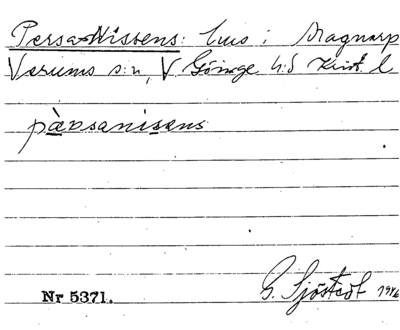 Persa-Nissens: hus i Magnarp
Verums s:n, V Göinge h:d Krist. l
pàrsanisens
Nr 5371. G. Sjöstedt 1946